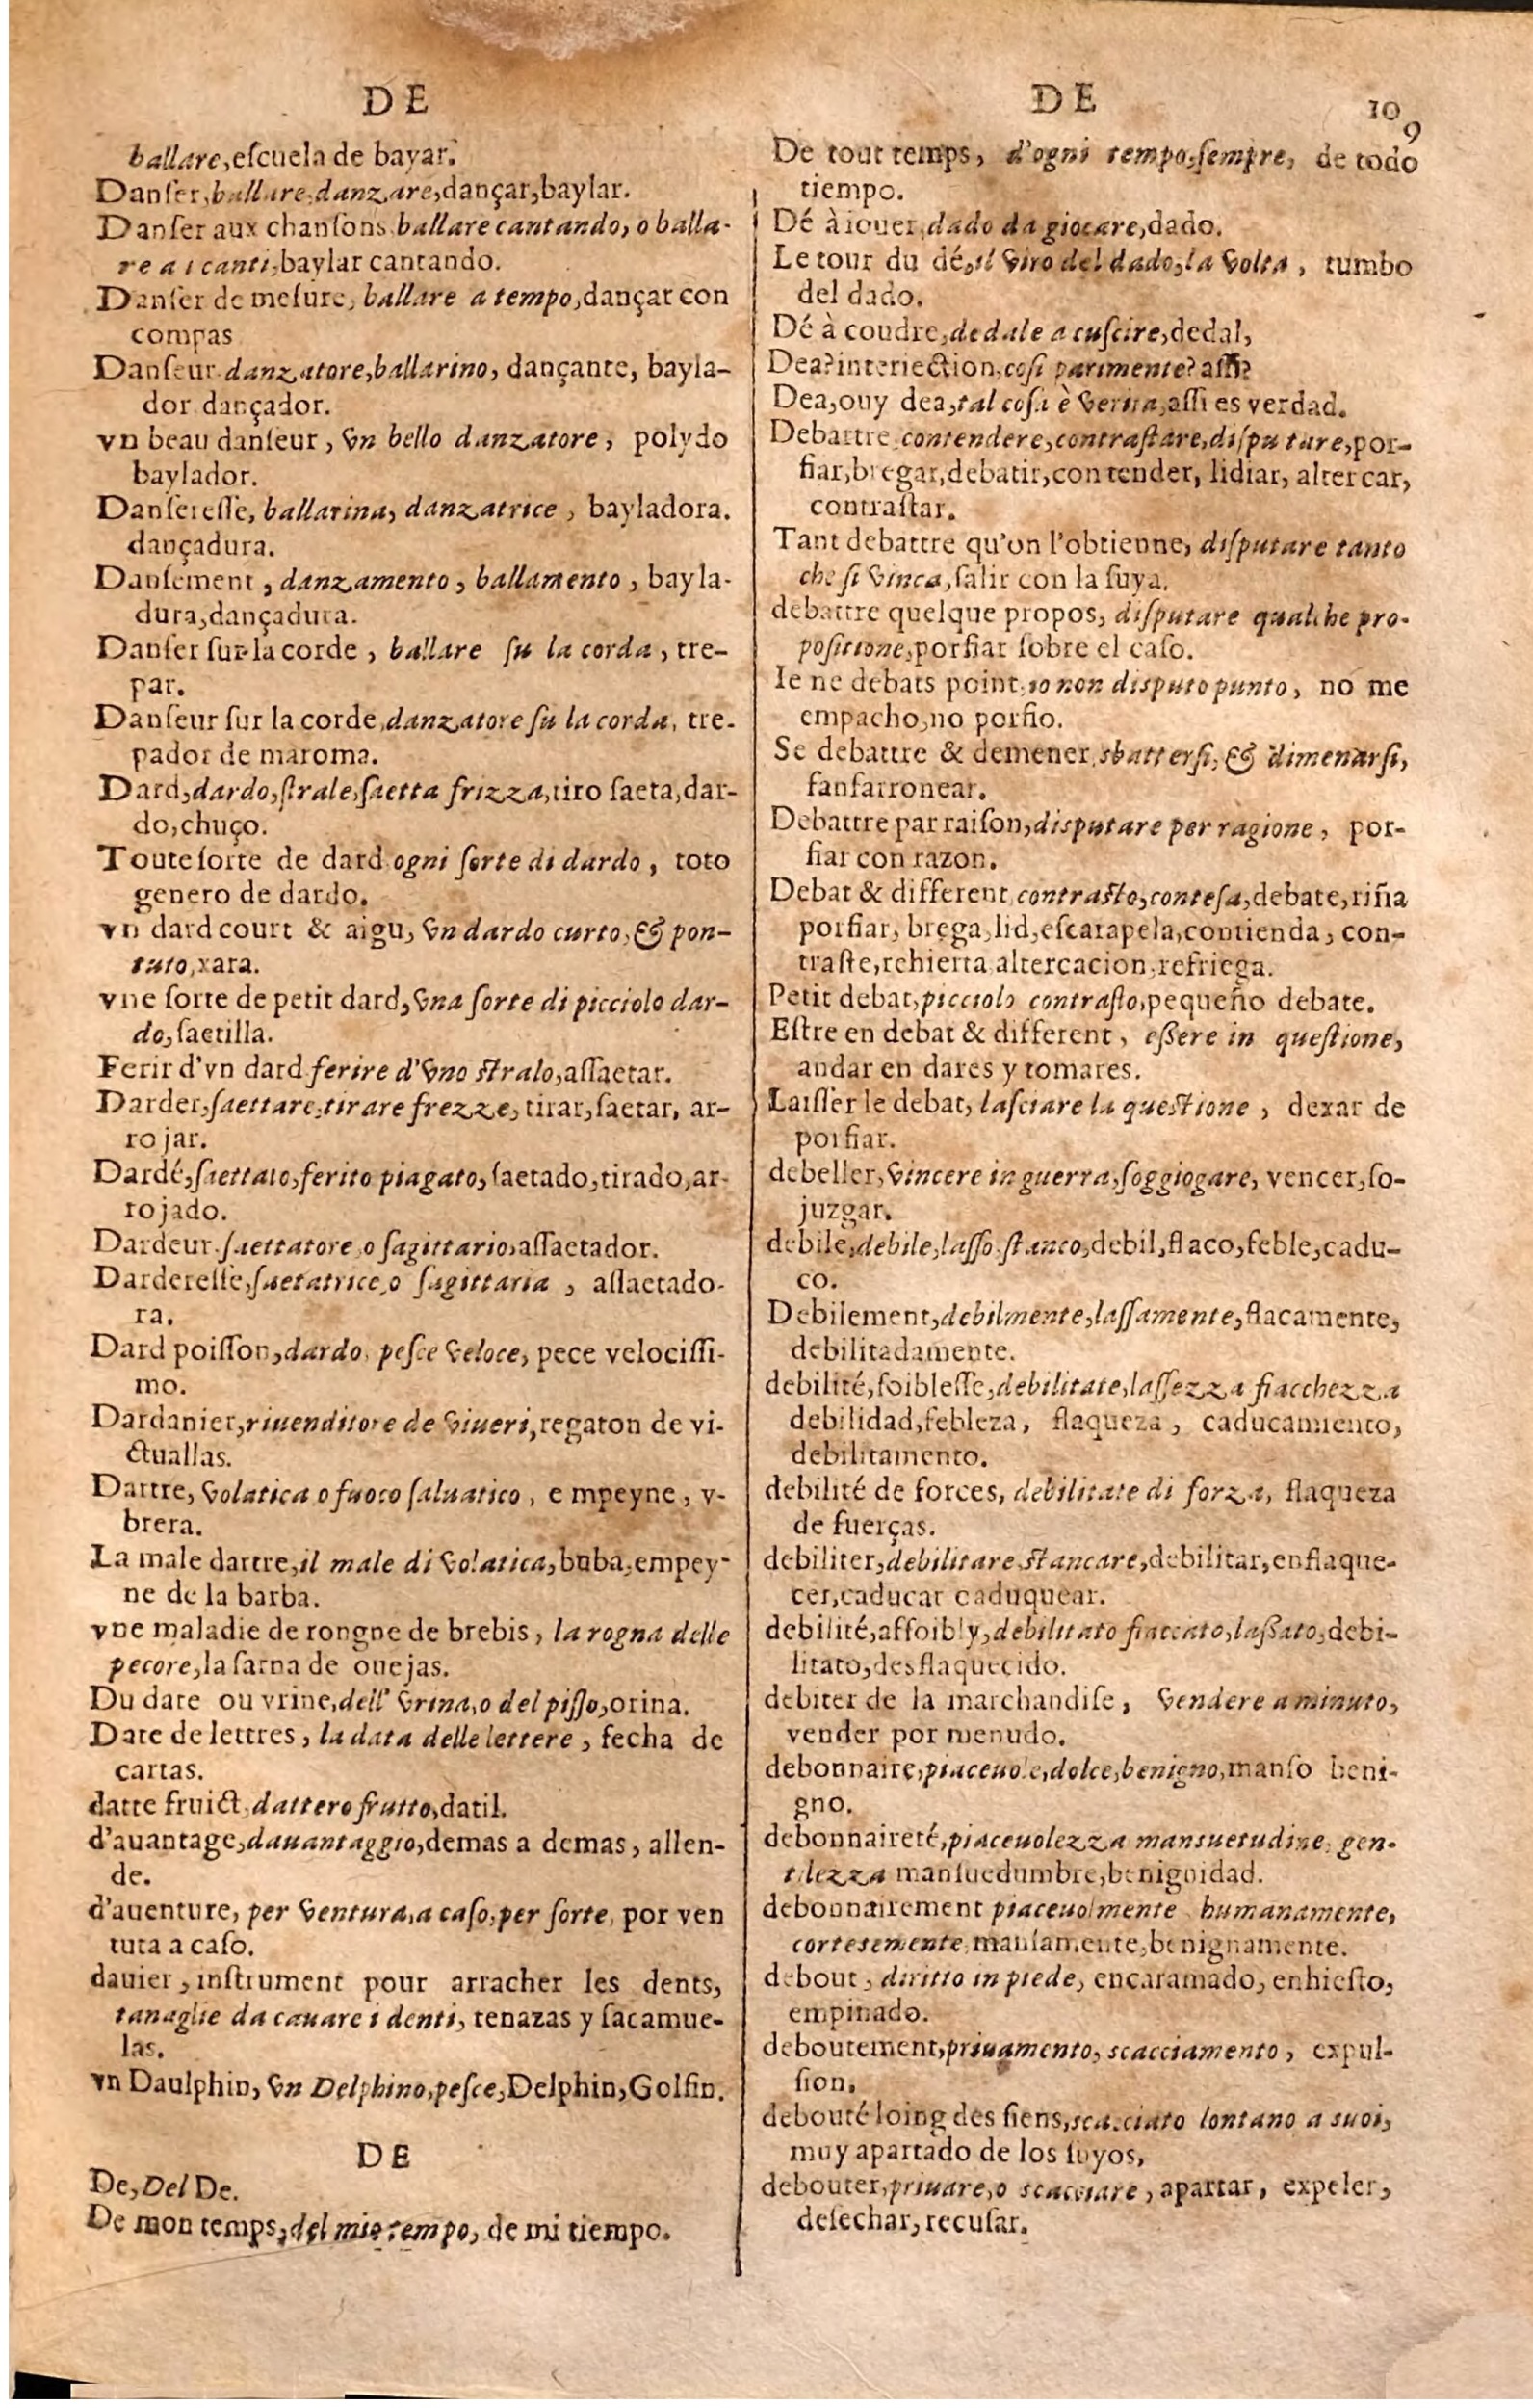 DE
ballare,eſcuela de bayar.
Danſer,ballare,danzare,dançar,baylar.
Danſer aux chanſons ballare cantando, o balla-
re a i canti,baylar cantando.
Danſer de meſure, ballare a tempo,dançar con
compas
Danſeur danzatore,ballarino, dançante, bayla-
dor dançador.
vn beau danſeur, vn bello danzatore, polydo
baylador.
Danſereſſe, ballarina, danzatrice, bayladora.
dançadura.
Danſement, danzamento, ballamento, bayla-
dura,dançadura.
Danſer ſur la corde, ballare ſu la corda, tre-
par.
Danſeur ſur la corde,danzatore ſu la corda, tre-
pador de maroma.
Dard,dardo,ſtrale,ſaetta frizza,tiro ſaeta,dar-
do,chuço.
Toute ſorte de dard ogni ſorte di dardo, toto
genero de dardo.
vn dard court & aigu, vn dardo curto, & pon-
tuto,xara.
vne ſorte de petit dard, vna ſorte di picciolo dar-
do,ſaetilla.
Ferir d'vn dard ferire d'vno ſtralo,aſſaetar.
Darder,ſaettare,tirare frezze, tirar,ſaetar, ar-
rojar.
Dardé,ſaettato,ferito piagato, ſaetado,tirado,ar-
rojado.
Dardeur ſaettatore o ſagittario,aſſaetador.
Dardereſſe,ſaetatrice,o ſagittaria, aſſaetado-
ra.
Dard poiſſon,dardo, peſce veloce, pece velociſſi-
mo.
Dardanier,riuenditore de viueri,regaton de vi-
ctuallas.
Dartre, volatica o fuoco ſaluatico, e mpeyne, v-
brera.
La male dartre,il male di volatica,buba,empey-
ne de la barba.
vne maladie de rongne de brebis, la rogna delle
pecore,la ſarna de ouejas.
Du date ou vrine,dell' vrina,o del piſſo,orina.
Date de lettres, la data delle lettere, fecha de
cartas.
datte fruict,dattero frutto,datil.
d'auantage,dauantaggio,demas a demas, allen-
de.
d'auenture, per ventura,a caſo,per ſorte, por ven
tura a caſo.
dauier, inſtrument pour arracher les dents,
tanaglie da cauare i denti, tenazas y ſacamue-
las.
vn Daulphin, vn Delphino,peſce,Delphin,Golfin.
DE
De,Del De.
De mon temps,del mio tempo, de mi tiempo.
DE
109
De tout temps, d'ogni tempo,ſempre, de todo
tiempo.
Dé à iouer,dado da giocare,dado.
Le tour du dé,il viro del dado,la volta, tumbo
del dado.
Dé à coudre,dedale a cuſcire,dedal,
Dea?interiection,coſi parimente?aſſi?
Dea,ouy dea,tal coſa è verita,aſſi es verdad.
Debattre contendere,contraſtare,diſputare,por-
fiar,bregar,debatir,contender, lidiar, altercar,
contraſtar.
Tant debattre qu'on l'obtienne, diſputare tanto
che ſi vinca,ſalir con la ſuya.
debattre quelque propos, diſputare qualche pro-
poſitione,porfiar ſobre el caſo.
Ie ne debats point,io non disputo punto, no me
empacho,no porfio.
Se debattre & demener,sbatterſi, & dimenarſi,
fanfarronear.
Debattre par raiſon,disputare per ragione, por-
fiar con razon.
Debat & different,contraſto,conteſa,debate,riña
porfiar, brega,lid,eſcarapela,contienda, con-
traſte,rehierta,altercacion,refriega.
Petit debat,picciolo contraſto,pequeño debate.
Eſtre en debat & different, eßere in queſtione,
andar en dares y tomares.
Laiſſer le debat, laſciare la queſtione, dexar de
porfiar.
debeller,vincere in guerra,ſoggiogare, vencer,ſo-
juzgar.
debile,debile,laſſo ſtanco,debil,flaco,feble,cadu-
co.
Debilement,debilmente,laſſamente,flacamente,
debilitadamente.
debilité,foibleſſe,debilitate,laſſezza fiacchezza
debilidad,febleza, flaqueza, caducamiento,
debilitamento.
debilité de forces, debilitate di forza, flaqueza
de fuerças.
debiliter,debilitare ſtancare,debilitar,enflaque-
cer,caducar caduquear.
debilité,affoibly,debilitato fiaccato,laßato,debi-
litato,desflaquecido.
debiter de la marchandiſe, vendere a minuto,
vender por menudo.
debonnaire,piaceuole,dolce,benigno,manſo beni-
gno.
debonnaireté,piaceuolezza mansuetudine, gen-
tilezza manſuedumbre,benignidad.
debonnairement piaceuolmente humanamente,
cortesemente manſamente,benignamente.
debout, diritto in piede, encaramado, enhieſto,
empinado.
deboutement,priuamento, scacciamento, expul-
ſion.
debouté loing des ſiens,scacciato lontano a suoi,
muy apartado de los ſuyos,
debouter,priuare,o scacciare, apartar, expeler,
deſechar,recuſar.